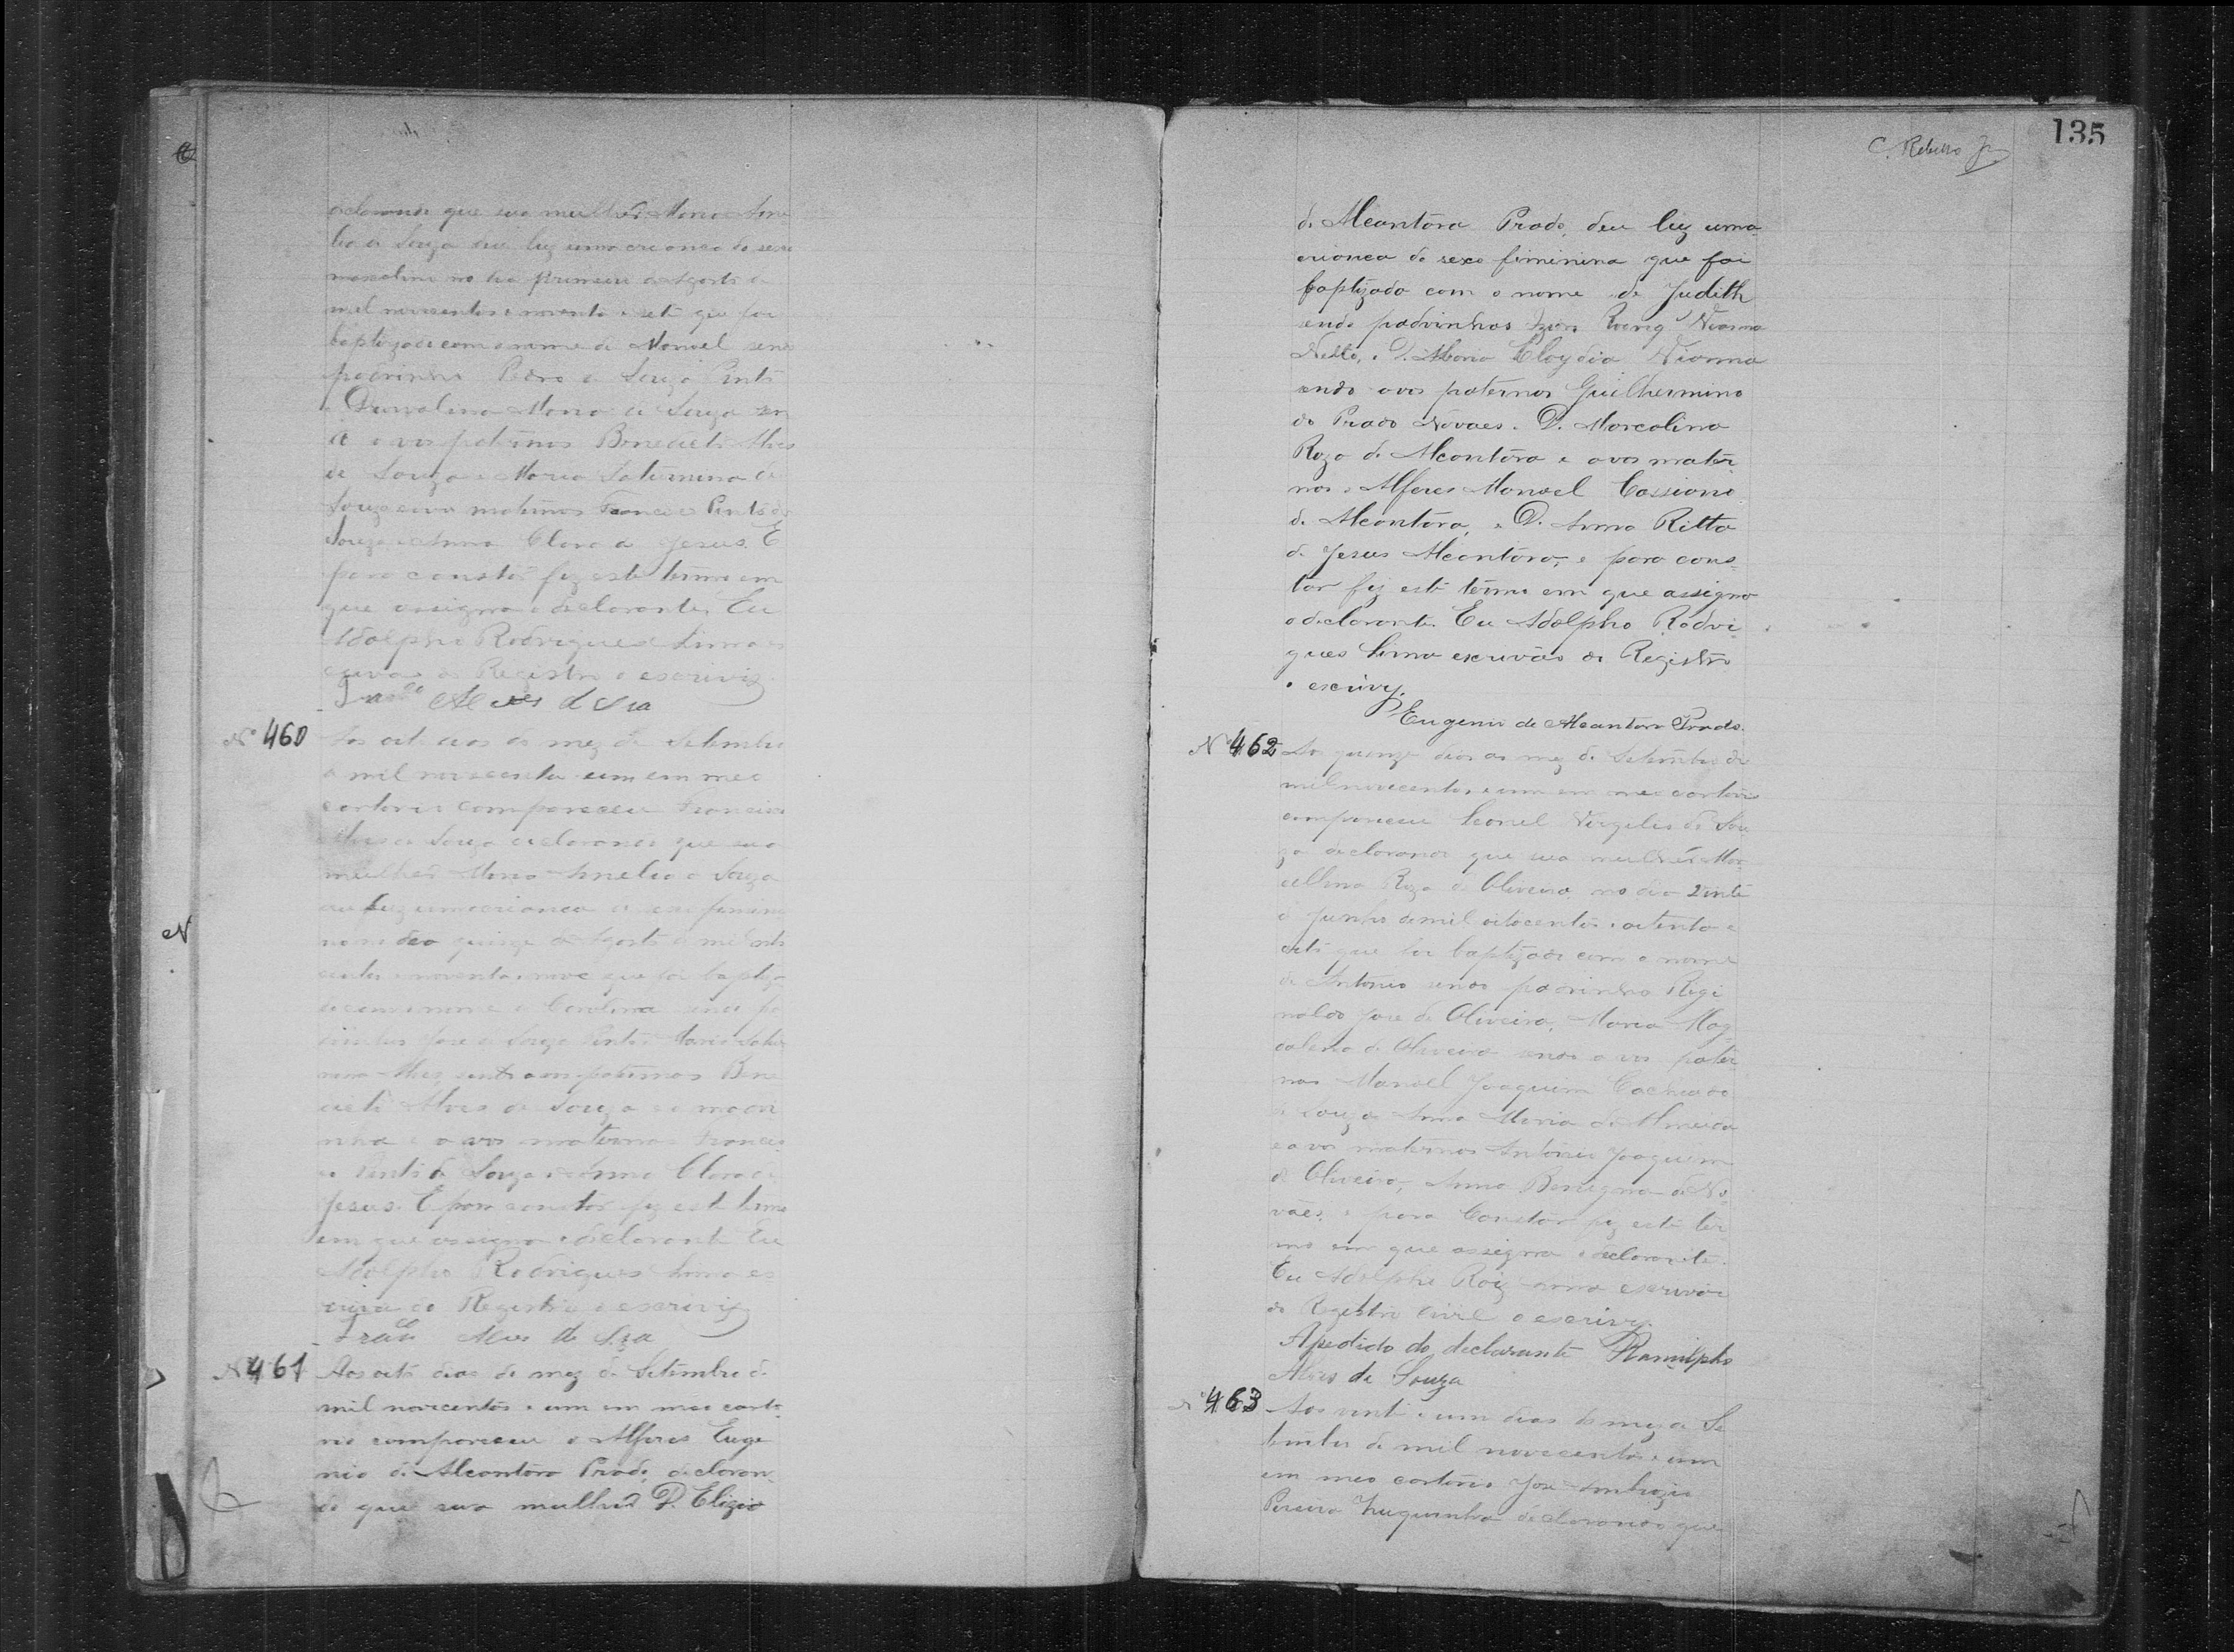 declarando que sua mulher Maria Ame
lia de Souza deu luz uma creanca do sexo
masculino no dia primeiro de Agosto de
mil novecentos e noventa e sete que foi
baptizado com o nome de Manoel sendo
padrinhos Pedro de Souza Pinto
e Durvalina Maria de Souza sen
do avos paternos Benedicto Alves
de Souza e Maria Saturnina de
Souza e avos maternos Francisco Pinto de
Souza e Anna Clara de Jesus. E
para constar fiz este termo em
que assigna o declarante. Eu
Adolpho Rodrigues Lima es
crivão do Registro o escrivi
Franco Alves de Sza
Nº 460
Aos oito dias do mez de Setembro
de mil novecentos e um em meo
cartorio compareceu Francisco
Alves de Souza declarando que sua
mulher Maria Amelia de Souza
deu luz uma crianca do sexo femini
no no dia quinze de Agosto de mil oito
centos e noventa e nove que foi baptiza
da com o nome de Carolina sendo pa
drinhos José de Souza Pinto e Maria Satur
nina Alves, sendo avos paternos Bene
dicto Alves de Souza e a madri
nha e avos maternos Francis
co Pinto de Souza e Anna Clara de
Jesus. E para constar fiz este termo
em que assigna o declarante Eu
Adolpho Rodrigues Lima es
crivão do Registro o escrivi
Franco Alves de Sza
Nº 461
Aos oito dias do mez de Setembro de
mil novecentos e um em meo carto
rio compareceu o Alferes Euge
nio de Alcantara Prado, declaran
do que sua mulher D. Elizia
135
C. Rebello Jr
de Alcantara Prado, deu luz uma
crianca do sexo fiminina que foi
baptizada com o nome de Judith
sendo padrinhos Vianna
Netto, e D. Maria Vianna
sendo avos paternos Guilhermino
do Prado Novaes e D. Marcolina
Roza de Alcantara e avos mater
nos o Alferes Manoel Cassiano
de Alcantara, e D. Anna Ritta
de Jesus Alcantara, e para cons
tar fiz este termo em que assigna
o declarante. Eu Adolpho Rodri
gues Lima escrivão do Registro
o escrivy.
Eugenio de Alcantara Prado.
Nº 462
Aos quinze dias do mez de Setembro de
mil novecentos e um em meo cartorio
compareceu Leonel Virgilio de Sou
za declarando que sua mulher Mar
cellina Roza de Oliveira, no dia vinte
de Junho de mil oitocentos e oitenta e
oito que foi baptizado com o nome
de Antonio sendo padrinhos Regi
naldo José de Oliveira, Maria Mag
dalena de Oliveira sendo avos pater
nos Manoel Joaquim
de Souza e Anna Maria de Almeida
e avos maternos Antonio Joaquim
de Oliveira, Anna Benigna de No
vaes, e para constar fiz este ter
mo em que assigna o declarante.
Eu Adolpho Roiz Lima escrivão
do Registro Civil o escrivy.
Apedido do declarante Ramilpho
Alves de Souza
Nº 463
Aos vinte e um dias do mez de Se
tembro de mil novecentos e um
em meo cartorio José Ambrozio
Pereira declarando que